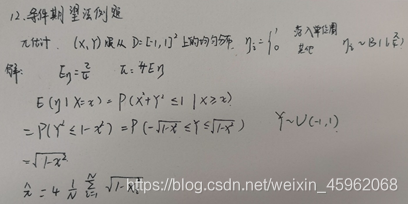 12.条件期望法例题
π估计. (X,Y)服从 D=[-1,1]² 上的均匀分布. η_i={1 落入单位圆
0 其他 η_i~B(1,π/4)
解: Eη=π/4 π=4Eη
E(η|X=x)=P(X²+Y²≤1|X=x)
=P(Y²≤1-x²)=P(-√1-x²≤Y≤√1-x²) Y~U(-1,1)
=√1-x²
π̂=4 1/N Σ_{i=1}^{N} √1-X_i²
https://blog.csdn.net/weixin_45962068